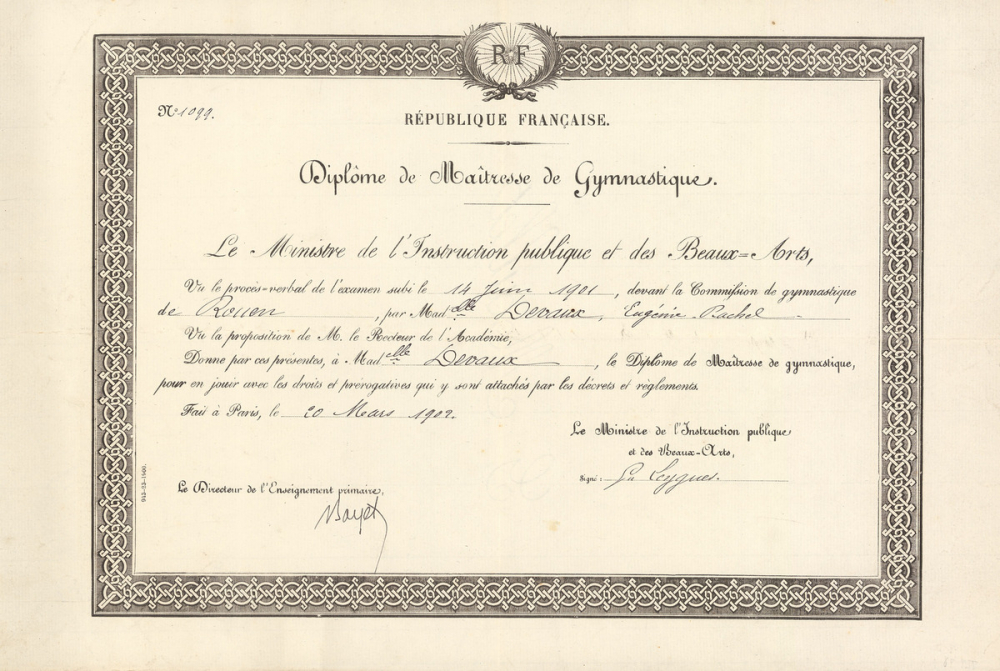 RF
Nº 1099.
RÉPUBLIQUE FRANÇAISE.
Diplôme de Maîtresse de Gymnastique.
Le Ministre de l'Instruction publique et des Beaux=Arts,
Vu le procès-verbal de l'examen subi le 14 Juin 1901, devant la Commission de gymnastique
de Rouen, par Mad elle Devaux, Eugénie Rachel
Vu la proposition de M. le Recteur de l'Académie,
Donne par ces présentes, à Mad elle Devaux, le Diplôme de Maîtresse de gymnastique,
pour en jouir avec les droits et prérogatives qui y sont attachés par les décrets et règlements.
Fait à Paris, le 20 Mars 1902.
Le Ministre de l'Instruction publique
et des Beaux-Arts,
Signé: G. Leygues.
Le Directeur de l'Enseignement primaire,
Bayet